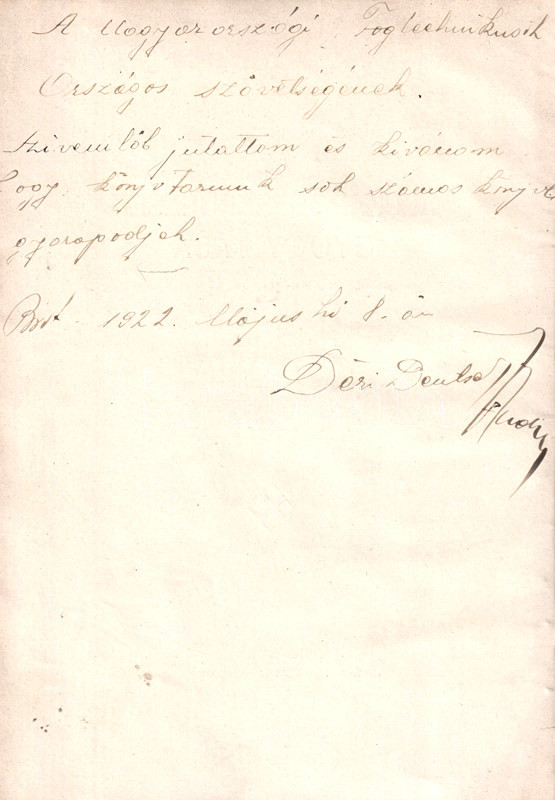 A Magyarországi Fogtechnikusok
Országos szövetségének.
Szivemből jutattom és kivánom
hogy könyvtárunk sok számos könyvel
gyarapodjék.
Bpst 1922. Május hó 8.-án
Déri Deutsch